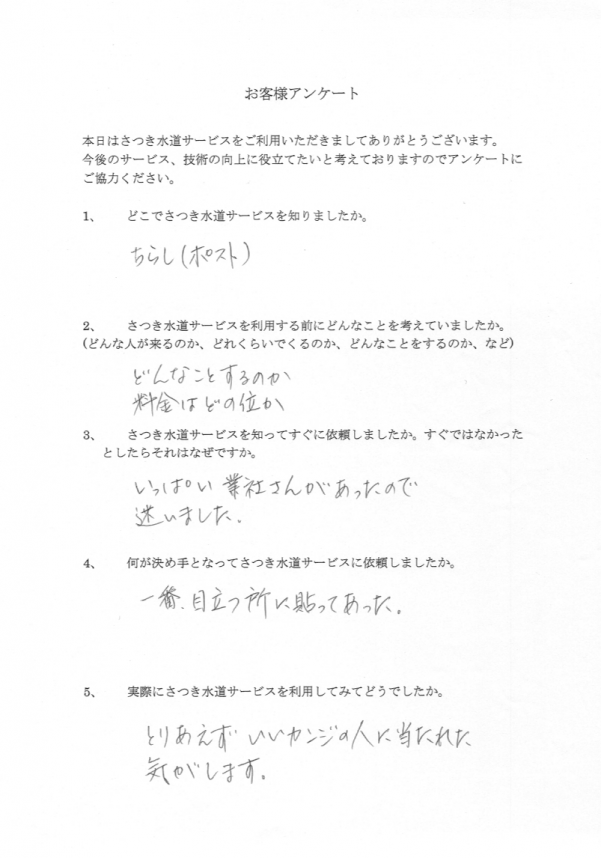 お客様アンケート
本日はさつき水道サービスをご利用いただきましてありがとうございます。
今後のサービス、技術の向上に役立てたいと考えておりますのでアンケートに
ご協力ください。
1、 どこでさつき水道サービスを知りましたか。
ちらし(ポスト)
2、 さつき水道サービスを利用する前にどんなことを考えていましたか。
(どんな人が来るのか、どれくらいでくるのか、どんなことをするのか、など)
どんなことするのか
料金はどの位か
3、 さつき水道サービスを知ってすぐに依頼しましたか。すぐではなかった
としたらそれはなぜですか。
いっぱい業社さんがあったので
迷いました。
4、 何が決め手となってさつき水道サービスに依頼しましたか。
一番、目立つ所に貼ってあった。
5、 実際にさつき水道サービスを利用してみてどうでしたか。
とりあえずいいカンジの人に当たれた
気がします。